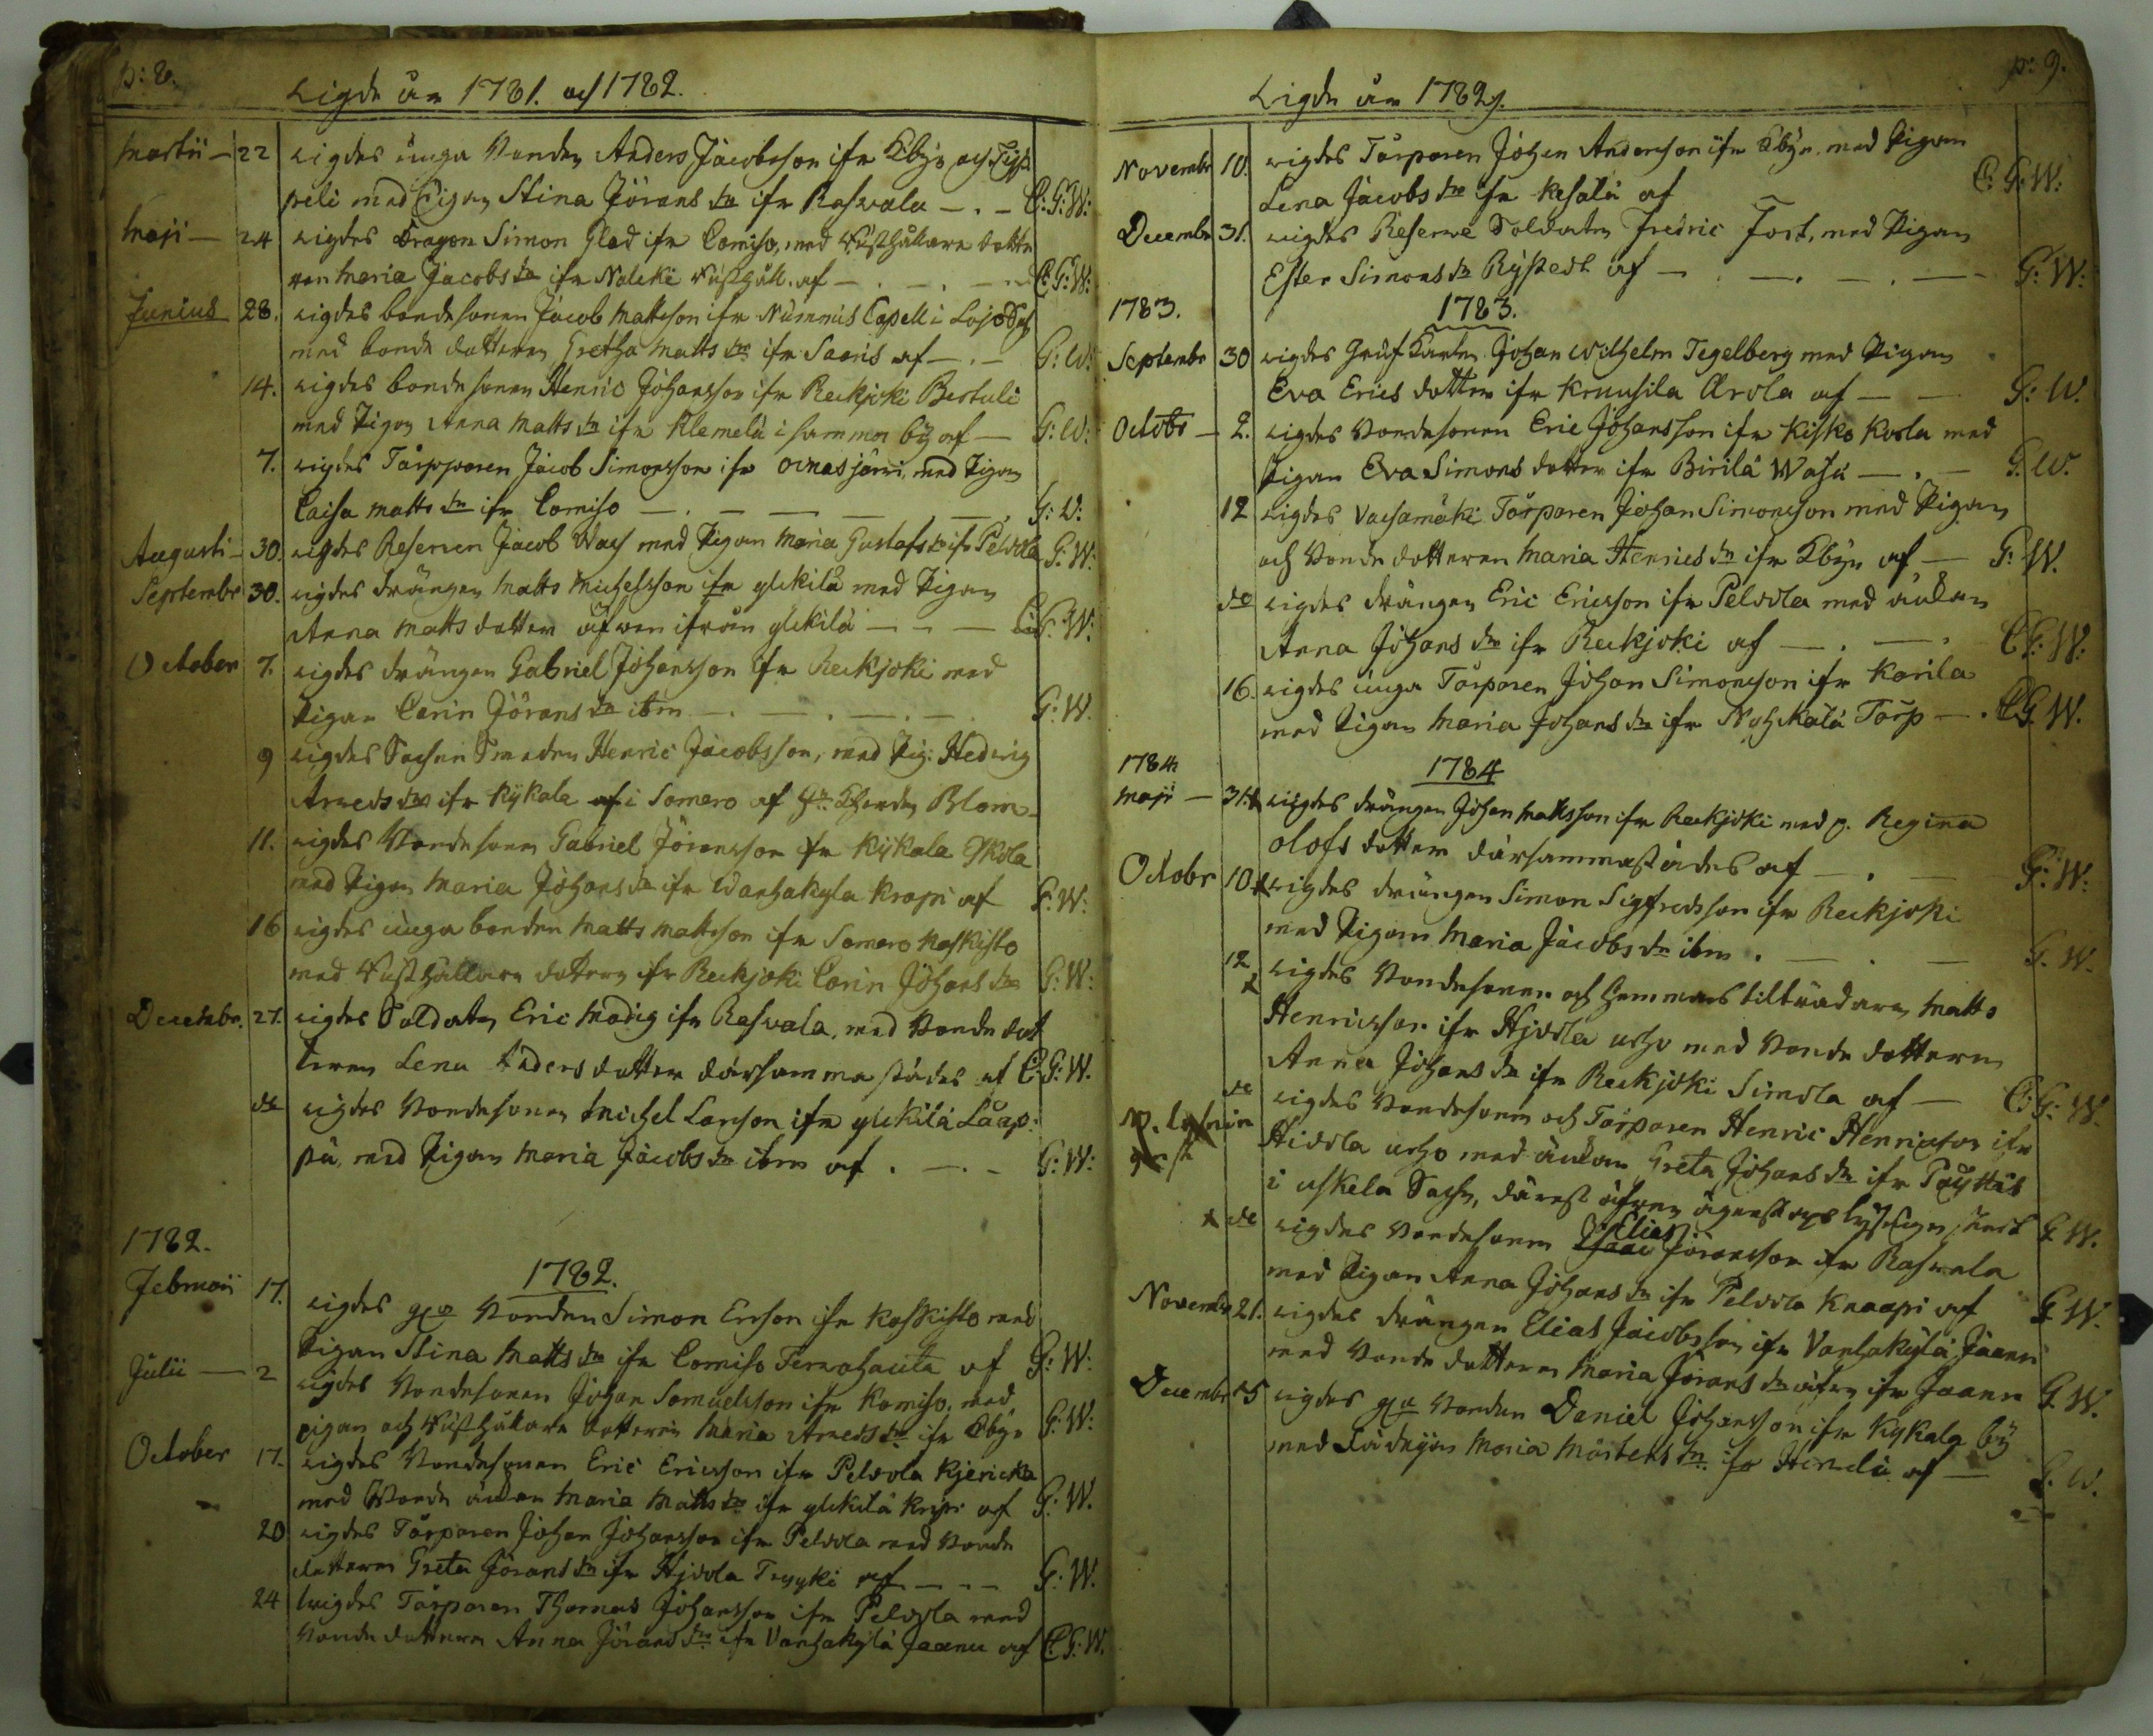 p: 8.
Wigde år 1781. och 1782.
Martii — 22 wigdes unga Bonden Anders Jacobsson ifr Kbÿn och
peli med Pigan Stina Jörans dr ifr Rasvala — . — C: G: W:
Maji — 24 wigdes Dragon Simon Glad ifr Comiso, med Rusthållare dotte
ren Maria Jacobs dr ifr Naleki Rusthåll. af — . — . — C: G: W:
Junius 28. wigdes bondesonen Jacob Mattsson ifr Nummis Capell i Lojo Sn
med bonde dotteren Gretha Matts dr ifr Saaris af — . — G: W:
14. wigdes bondesonen Henric Johansson ifr Reckjoki Bertuli
med Pigan Anna Matts dr ifr Klemelä i samma by af — G: W:
7. wigdes Torpparen Jacob Simonsson ifr Oinasjärvi, med Pigan
Caisa Matts dr ifr Comiso — . — — — — . G: W:
Augusti — 30. wigdes Reserven Jacob med Pigan Maria Gustafs dr ifr Peldola G: W:
Septembr 30. wigdes drängen Matts Michelsson ifr ylikilä med Pigan
Anna Matts dotter äfwen ifrån ylikilä — — — C: G: W:
October 7. wigdes drängen Gabriel Johansson ifr Reckjoki med
Pigan Carin Jörans dr ibm — . — . — . — G: W.
9 wigdes Sochne Smeden Henric Jacobsson, med Pig: Hedwig
Arweds dr ifr Kÿkala i Somero af Hr Blom
11. wigdes Bondesonen Gabriel Jöransson ifr Kÿkala
med Pigan Maria Johans dr ifr Wanhakyla Krapi af G: W:
16 wigdes unga bonden Matts Mattsson ifr Somero Koskisto
med Rusthållare dotteren ifr Reckjoki Carin Johans dr G: W:
Decembr. 27. wigdes Soldaten Eric Modig ifr Rasvala, med Bonde dot
teren Lena Anders dotter därsammastädes af C: G: W.
do wigdes Bondesonen Michel Larsson ifr ylikilä Laap:
pa, med Pigan Maria Jacobs dr ibm af . — . — G: W:
1782.
1782.
Februarii 17. wigdes Bonden Simon Ersson ifr Koskisto med
Pigan Stina Matts dr ifr Comiso af G: W:
Julii — 2 wigdes Bondesonen Johan Samuelsson ifr Komiso, med
pigan och Rusthållare dotteren Maria Arweds dr ifr Kbÿn G: W:
October 17. wigdes Bondesonen Eric Ericsson ifr Peldola
med Bonde änkan Maria Matts dr ifr ylikilä af G: W.
20 wigdes Torparen Johan Johansson ifr Peldola med Bonde
dotteren Greta Jörans dr ifr Hjdola af — — — G: W.
24 wigdes Torparen Thomas Johansson ifr Peldola med
Bonde dotteren Anna Jörans dr ifr Vanhakÿlä Jaanu af C: G: W.
p: 9.
Wigde år 1782.
Novembr 10. wigdes Torparen Johan Andersson ifr Kbÿn, med Pigan
Lena Jacobs dr ifr af C: G: W:
Decembr 31. wigdes Reserve Soldaten Fredric Fort, med Pigan
Ester Simons dr af — . — . — . — G: W:
1783. 1783.
Septembr 30 wigdes Johan Wilhelm Tegelberg med Pigan
Eva Erics dotter ifr Kruusila Arola af — — G: W.
Octobr — 2. wigdes Bondesonen Eric Johansson ifr Kisko Korla med
Pigan Eva Simons dotter ifr — . — G. W.
12 wigdes Torparen Johan Simonsson med Pigan
och Bonde dotteren Maria Henrics dr ifr Kbÿn af — G: W.
do wigdes drängen Eric Ericsson ifr Peldola med änkan
Anna Johans dr ifr Reckjoki af — . — . C: G: W:
16. wigdes unga Torparen Johan Simonsson ifr Karila
med Pigan Maria Johans dr ifr Torp — . C G. W.
1784. 1784
Maji — 31. wigdes drängen Johan Mattsson ifr Reckjoki med p. Regina
Olofs dotter därsammastädes af — . — G: W:
Octobr 10 wigdes drängen Simon Sigfredsson ifr Reckjoki
med Pigan Maria Jacobs dr ibm . — . — G. W.
12 wigdes Bondesonen och Hemmans tilträdaren Matts
Henricsson ifr Hjdola med Bonde dotteren
Anna Johans dr ifr Reckjoki Simola af — C: G: W.
do wigdes Bondesonen och Torparen Henric Henricsson ifr
Hidola med änkan Greta Johans dr ifr
i uskela Sochn, G W.
do wigdes Bondesonen Elias Jöransson ifr Rasvala
med Pigan Anna Johans dr ifr Peldola Knaapi af G W.
Novembr 21. wigdes drängen Elias Jacobsson ifr Vanhakÿlä Jaanu
med Bonde dotteren Maria Jörans dr äfwen ifr Jaanu G W.
Decembr 5 wigdes Bonden Daniel Johansson ifr Kÿkala by
med Maria Mårtens dr ifr af — G. W.